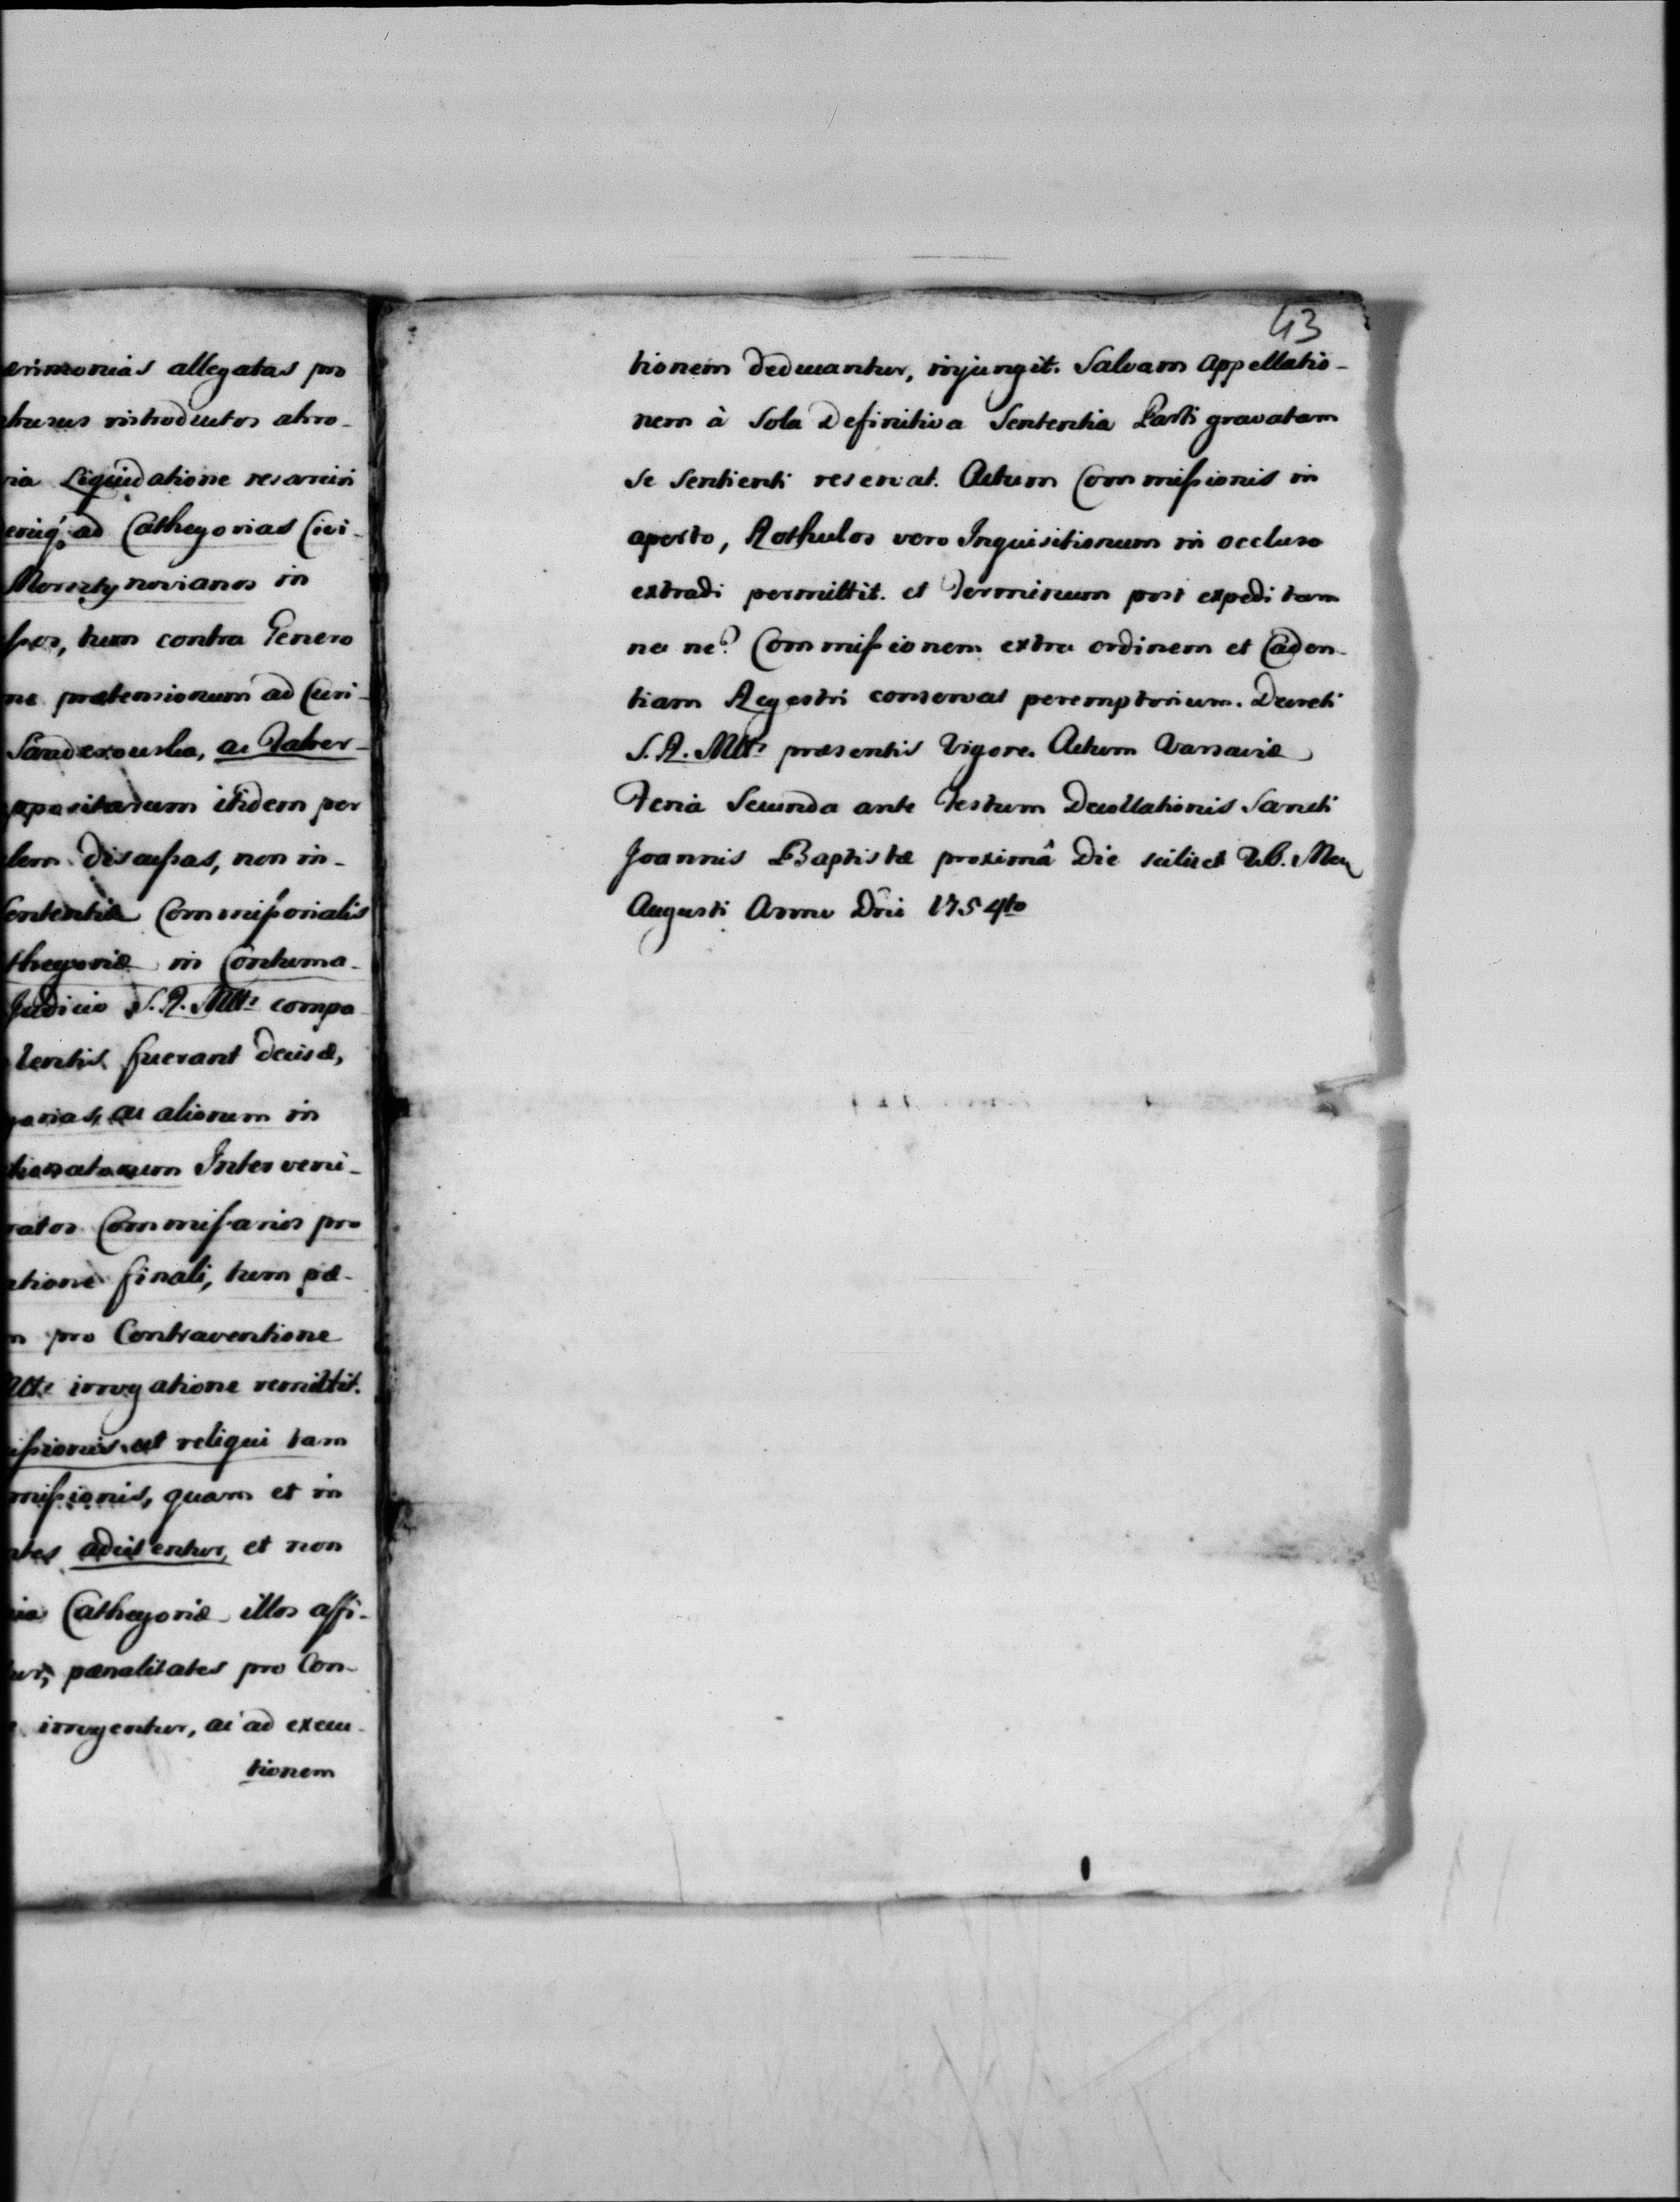 erimonias allegatas pro
abusus introductos abro-
ria Liquidatione resarciri
eriq3 ad Cathegorias Civi-
Morsztynovianos in
sos, tum contra Genero
ne prætensionum ad Curi-
Sanderouska, ac Taber-
ppositarum itidem per
lem discussas, non in-
Sententiæ Commissorialis
thegoriæ in Contuma-
Judicio S. R. Mttis compa
lentis fuerant decisæ,
gorias, ac aliorum in
tionatorum Interveni-
ratos Commissarios pro
atione finali, tum pæ-
n pro Contraventione
Mttis irrogatione remittit.
issionis, ut reliqui tam
missionis, quam et in
ates adcitentur, et non
nia Cathegoriæ illos affi-
tur, pænalitates pro Con-
irrogentur, ac ad execu-
tionem
43
tionem deducantur, injungit. Salvam Appellatio-
nem à Sola Definitiva Sententia Parti gravatam
se sentienti reservat. Actum Commissionis in
aperto, Rothulos vero Inquisitionum in occluso
extradi permittit. et Terminum post expeditam
ne ne? Commissionem extra ordinem et Caden-
tiam Regestri conservat peremptorium. Decreti
S. R. Mttis præsentis Vigore. Actum Varsaviæ
Feria Secunda ante Festum Decollationis Sancti
Joannis Baptistæ proximâ Die scilicet 26. Men
Augusti Anno Dni 1754to